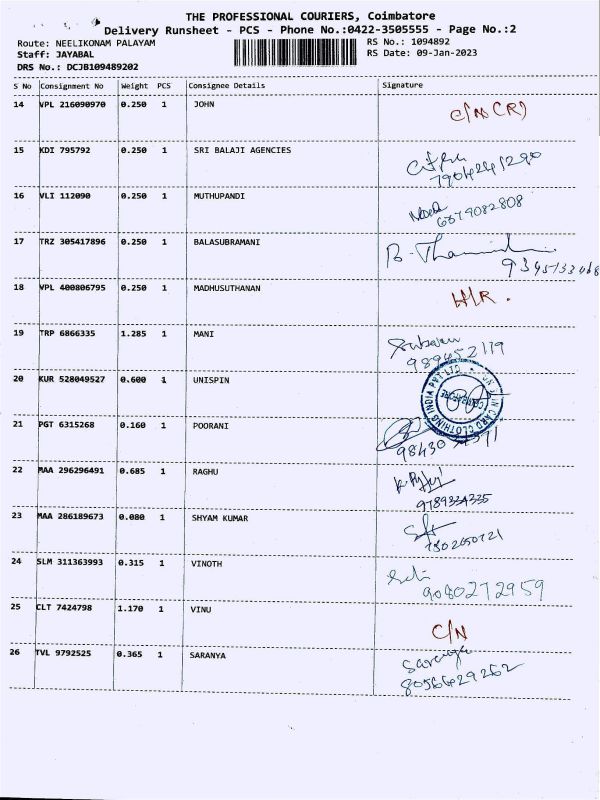 THE PROFESSIONAL COURIERS, Coimbatore
Delivery Runsheet - PCS - Phone No.:0422-3505555 - Page No.:2
Route: NEELIKONAM PALAYAM RS No.: 1094892
Staff: JAYABAL RS Date: 09-Jan-2023
DRS No.: DCJB109489202
S No Consignment No Weight PCS Consignee Details Signature
14 VPL 216090970 0.250 1 JOHN C/N (R)
15 KDI 795792 0.250 1 SRI BALAJI AGENCIES
16 VLI 112090 0.250 1 MUTHUPANDI
17 TRZ 305417896 0.250 1 BALASUBRAMANI
18 VPL 400806795 0.250 1 MADHUSUTHANAN
19 TRP 6866335 1.285 1 MANI
20 KUR 528049527 0.600 1 UNISPIN
21 PGT 6315268 0.160 1 POORANI
22 MAA 296296491 0.685 1 RAGHU
9789334335
23 MAA 286189673 0.080 1 SHYAM KUMAR
24 SLM 311363993 0.315 1 VINOTH
9080272959
25 CLT 7424798 1.170 1 VINU C/N
26 TVL 9792525 0.365 1 SARANYA Saranya
8056429262